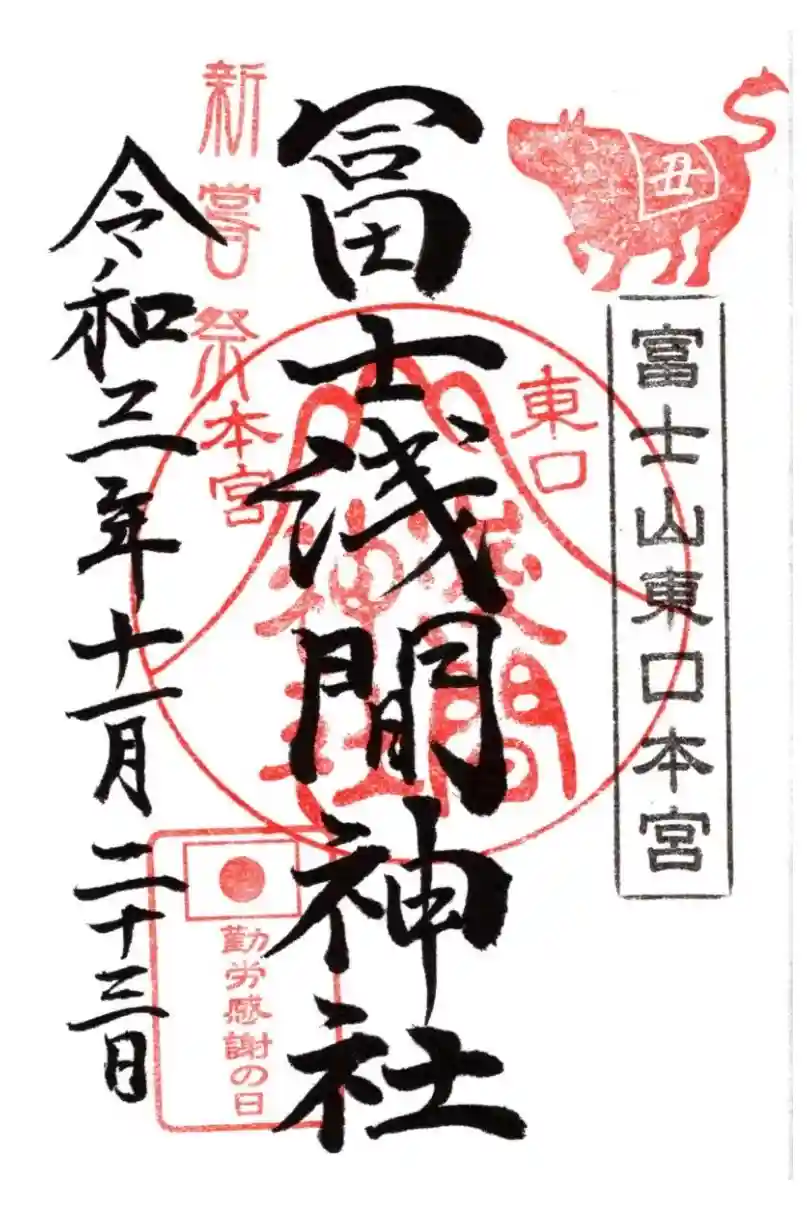 丑
富士山東口本宮
東口
冨士浅間神社
浅間
神社
新嘗祭
本宮
令和三年十一月二十三日
勤労感謝の日